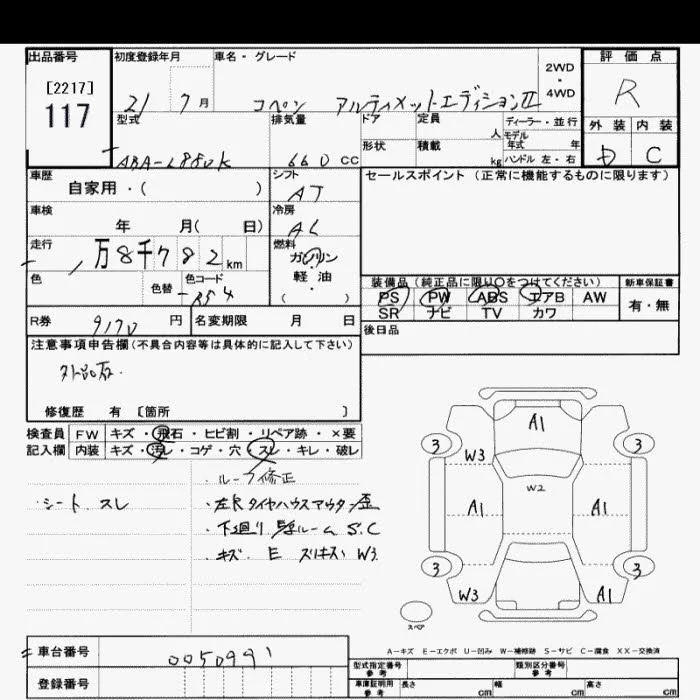 出品番号 初度登録年月 車名・グレード 2WD・4WD 評価点
[2217]
117
21 7月 コペン アルティメットエディションII R
型式 排気量 ドア 定員 人 ディーラー・並行 外装 内装
形状 積載 kg モデル年式 年 ハンドル 左・右
ABA-L880K 660 CC D C
車歴 シフト セールスポイント (正常に機能するものに限ります)
自家用・( ) AT
車検 冷房
年 月( 日) AC
走行 燃料
万8千782km ガソリン・軽油・( )
色 色替 色コード
装備品(純正品に限り○をつけてください) 新車保証書
PS PW ABS エアB AW 有・無
SR ナビ TV カワ
R券 9170円 名変期限 月 日 後日品
注意事項申告欄(不具合内容等は具体的に記入して下さい)
修復歴 有 [箇所 ]
検査員 FW キズ・飛石・ヒビ割・リペア跡・×要
記入欄 内装 キズ・汚レ・コゲ・穴・スレ・キレ・破レ
・ルーフ修正
・シート スレ
・左R タイヤハウスアウター歪
・下廻り S.C
・キズ E スリキズ W3
A1
3 3
W3
W2
A1 A1
3 3
W3 A1
スペア
A-キズ E-エクボ U-凹み W-補修跡 S-サビ C-腐食 XX-交換済
車台番号 0050991
登録番号
型式指定番号 参考 類別区分番号 参考
車庫証明用 参考 長さ cm 幅 cm 高さ cm